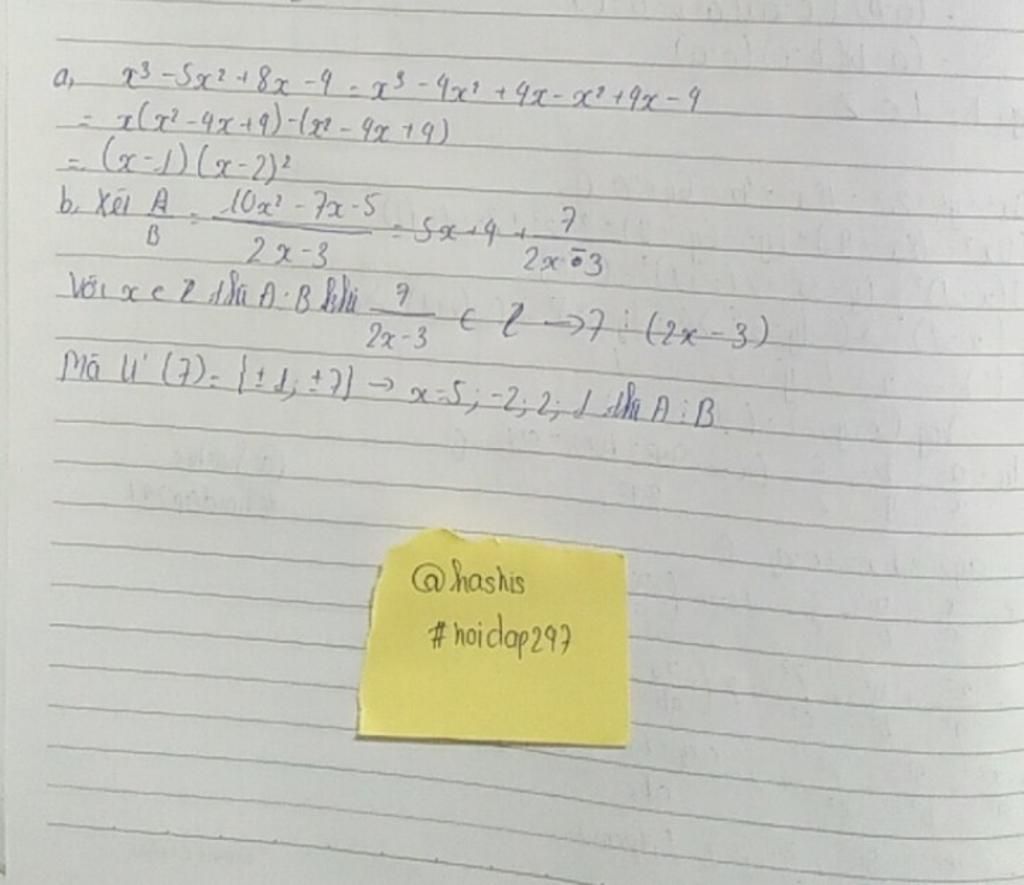 a, x³ - 5x² + 8x - 4 = x³ - 4x² + 4x - x² + 4x - 4
= x(x² - 4x + 4) - (x² - 4x + 4)
= (x - 1)(x - 2)²
b, Xét A/B = (10x² - 7x - 5)/(2x - 3) = 5x + 4 + 7/(2x - 3)
Với x ∈ Z thì A ⋮ B khi 7/(2x - 3) ∈ Z → 7 ⋮ (2x - 3)
Mà Ư(7) = {±1; ±7} → x = 5; -2; 2; 1 thì A ⋮ B
@hashis
#hoidap297